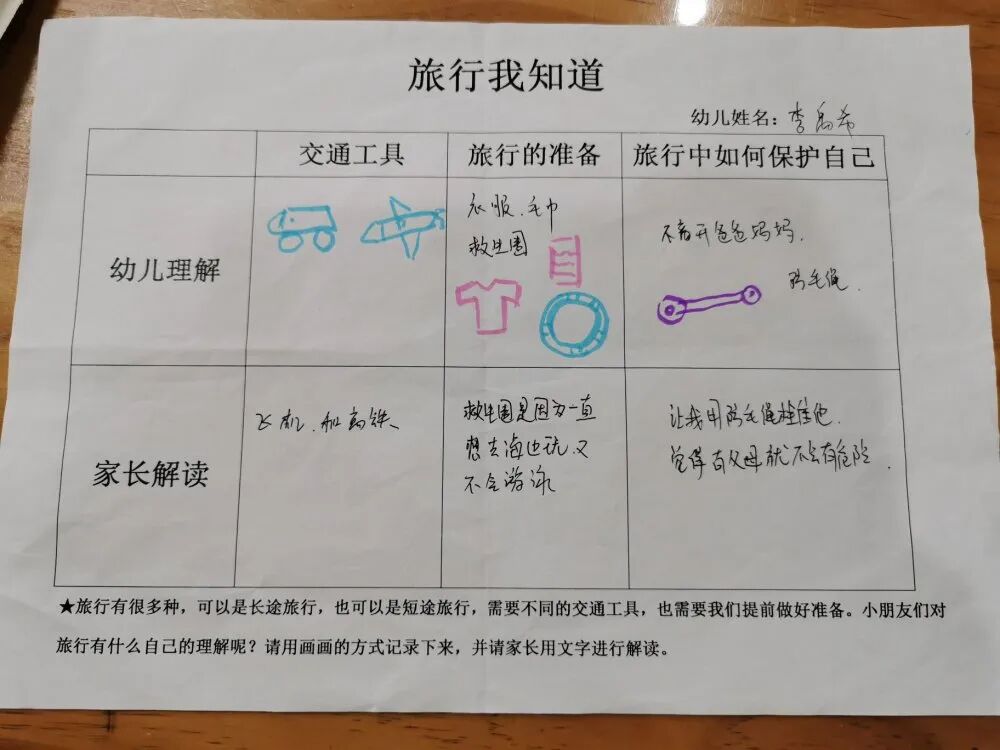 旅行我知道
幼儿姓名：李禹希
交通工具 旅行的准备 旅行中如何保护自己
幼儿理解
衣服、毛巾
救生圈
不离开爸爸妈妈.
防毛绳.
家长解读
飞机、和高铁、
救生圈是因为一直
想去海边玩又
不会游泳
让我用防毛绳拴住他.
觉得有父母就不会有危险.
★旅行有很多种，可以是长途旅行，也可以是短途旅行，需要不同的交通工具，也需要我们提前做好准备。小朋友们对
旅行有什么自己的理解呢？请用画画的方式记录下来，并请家长用文字进行解读。